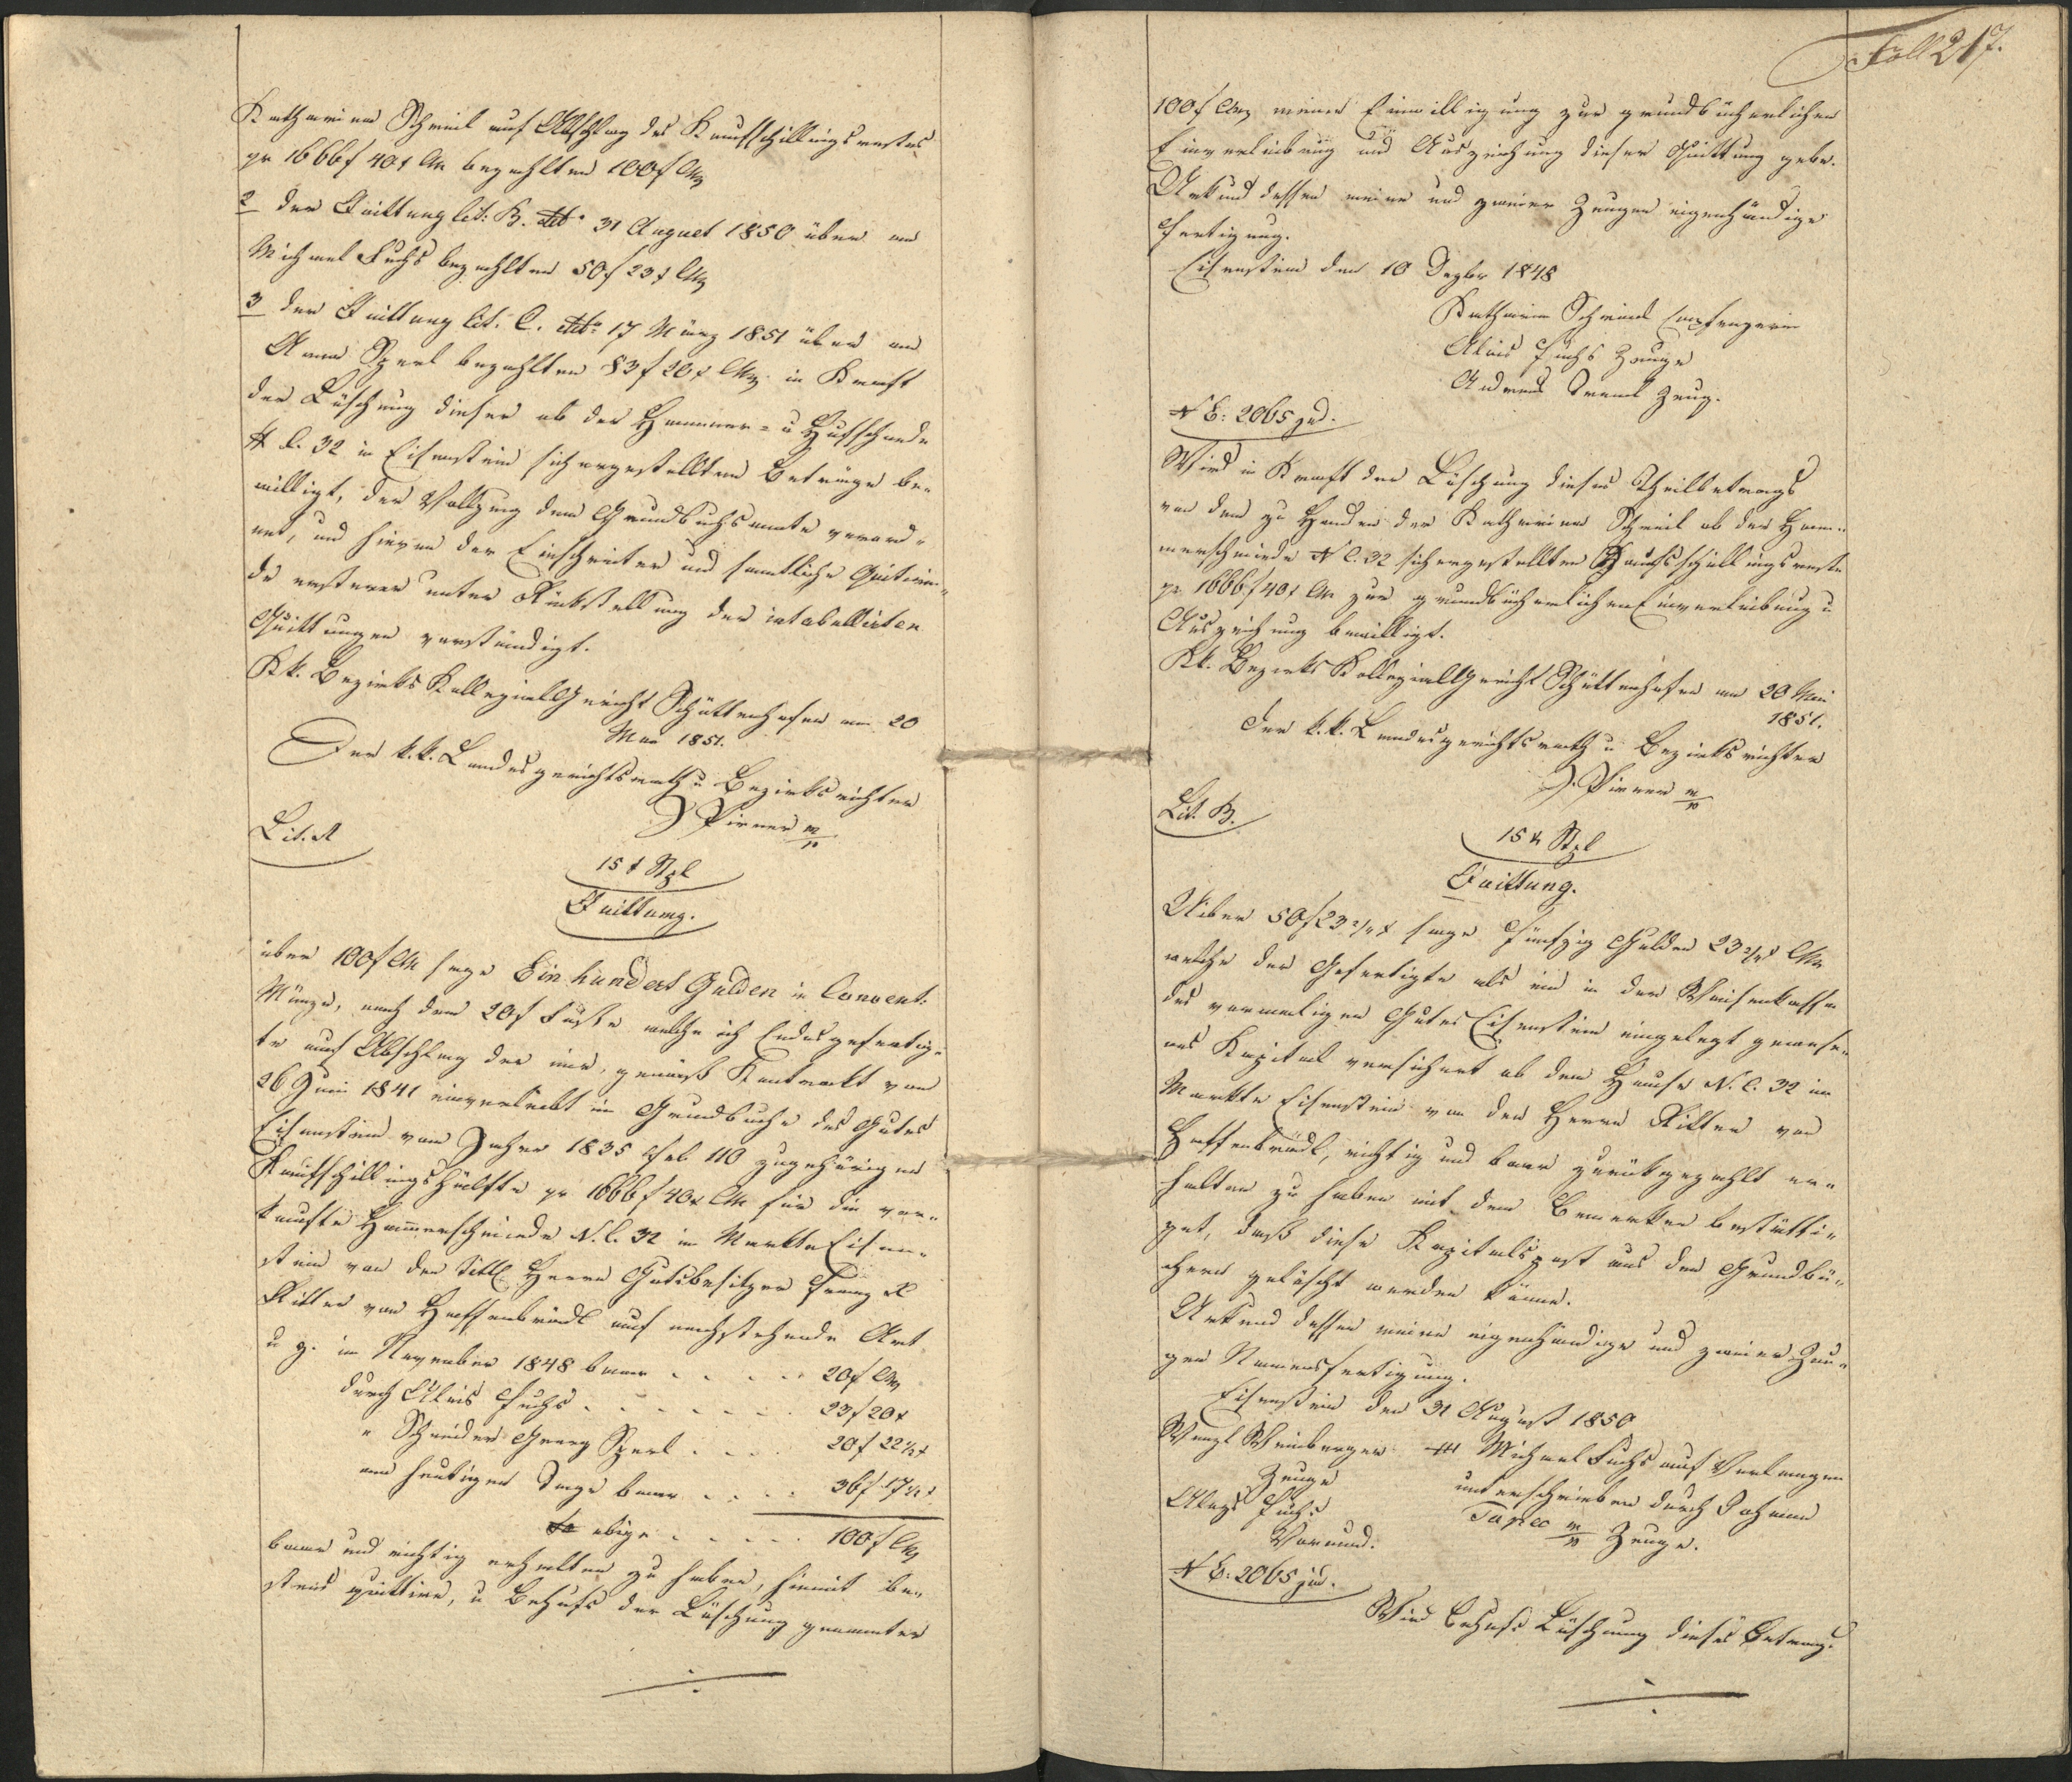 Katharina Schreil auf Abschlag des Kaufschillingsrestes
pr 1666 f 40 x CM bezahlten 100 f CM
2 der Quittung lit: B. ddto 31 August 1850 über an
Michael Fuchs bezahlten 50 f 23 x CM
3 der Quittung lit. C. ddto 17 März 1851 über an
Anna Sperl bezahlten 83 f 20 x CM in Kraft
der Löschung dieser ob der Hammer- u Hufschmiede
N C. 32 in Eisenstein sichergestellten Beträge be-
williget, der Vollzug dem Grundbuchsamte verord-
net, und hievon der Einschreiter und sämtliche Quitiren-
de ersterer unter Rückstellung der intabullirten
Quittungen verständigt.
Kk. Bezirks Kollegial Gericht Schüttenhofen am 20
Mai 1851.
Der k.k. Landesgerichtsrath u Bezirksrichter
J Pirner m/p
Lit. A
15 x Stpl
Quittung.
über 100 f CM sage Ein hundert Gulden in Convent.
Münze, nach dem 20 f Fuße welche ich Endesgefertig-
te auf Abschlag der mir, gemäß Kontrakt vom
26 Juni 1841 einverleibt im Grundbuche des Gutes
Eisenstein vom Jahre 1835 Fol 110 zugehörigen
Kaufschillingshälfte pr 1666 f 40 x CM für die ver-
kaufte Hammerschmiede N. C. 32 im Markte Eisen-
stein von den Titl Herrn Gutsbesitzer Franz X
Ritter von Haffenbrädl auf nachstehende Art
u z. im November 1848 baar . . . . . 20 f CM
durch Alois Fuchs . . . . . . . 23 f 20 x
" Schneider Georg Sperl . . . . 20 f 22 1/2 x
am heutigen Tage baar . . . . 36 f 17 1/2 x
obige . . . . . 100 f CM
baar und richtig erhalten zu haben, hiemit be-
stens quittire, u Behufs der Löschung genannter
Foll 217.
100 f CM meine Einwilligung zur grundbücherlichen
Einverleibung und Auszeichung dieser Quittung gebe.
Urkund dessen meine und zweier Zeugen eigenhändige
Fertigung.
Eisenstein den 10 Dezbr 1848
Katharina Schreindl Empfengerin
Alois Fuchs Zeuge
Andreas Treml Zeug.
N E: 2065 jud.
Wird in Kraft der Löschung dieses Theilbetrags
von dem zu Handen der Katharina Schreil ob der Ham-
merschmiede N C. 32 sichergestellten Kaufschillingsreste
pr 1666 f 40 x CM zur grundbücherlichen Einverleibung u
Auszeichnung bewilligt.
Kk. Bezirks Kollegial Gericht Schüttenhofen am 20 Mai
1851.
Der k.k. Landesgerichtsrath u Bezirksrichter
J. Pirner m/p
Lit. B.
15 x Stpl
Quittung.
Uiber 50 f 23 2/4 x sage Fünfzig Gulden 23 2/4 x CM
welche der Gefertigte als ein in der Waisenkassa
des vormaligen Gutes Eisenstein eingelegt gewese-
nes Kapital versichert ob dem Hause N. C. 32 im
Markte Eisenstein von den Herrn Ritter von
Haffenbrädl, richtig und baar zurückgezahlt er-
halten zu haben mit dem Bemerken bestätti-
get, daß diese Kapitalspost aus den Grundbü-
chern gelöscht werden könne.
Urkund dessen meine eigenhändige und zweier Zeu-
gen Namensfertigung.
Eisenstein den 31 August 1850
Wenzl Weinberger +++ Michael Fuchs auf Verlangen
Zeuge unterschrieben durch Johann
Aloys Fuchs Tapec m/p Zeuge.
Vormund.
N E: 2065 jud.
Wird Behufs Löschung dieses Betrags